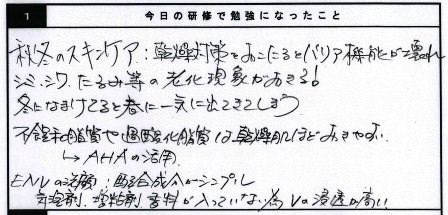 1 今日の研修で勉強になったこと
秋冬のスキンケア:乾燥対策をおこたるとバリア機能が壊れ
シミ・シワ・たるみ等の老化現象がおきる!
冬になまけてると春に一気に出てきてしまう
不飽和脂質や過酸化脂質は乾燥肌ほどおきやすい
↳AHAの活用
ENVの活用:配合成分がシンプル
増粘剤、香料が入っていない為Vの浸透が高い